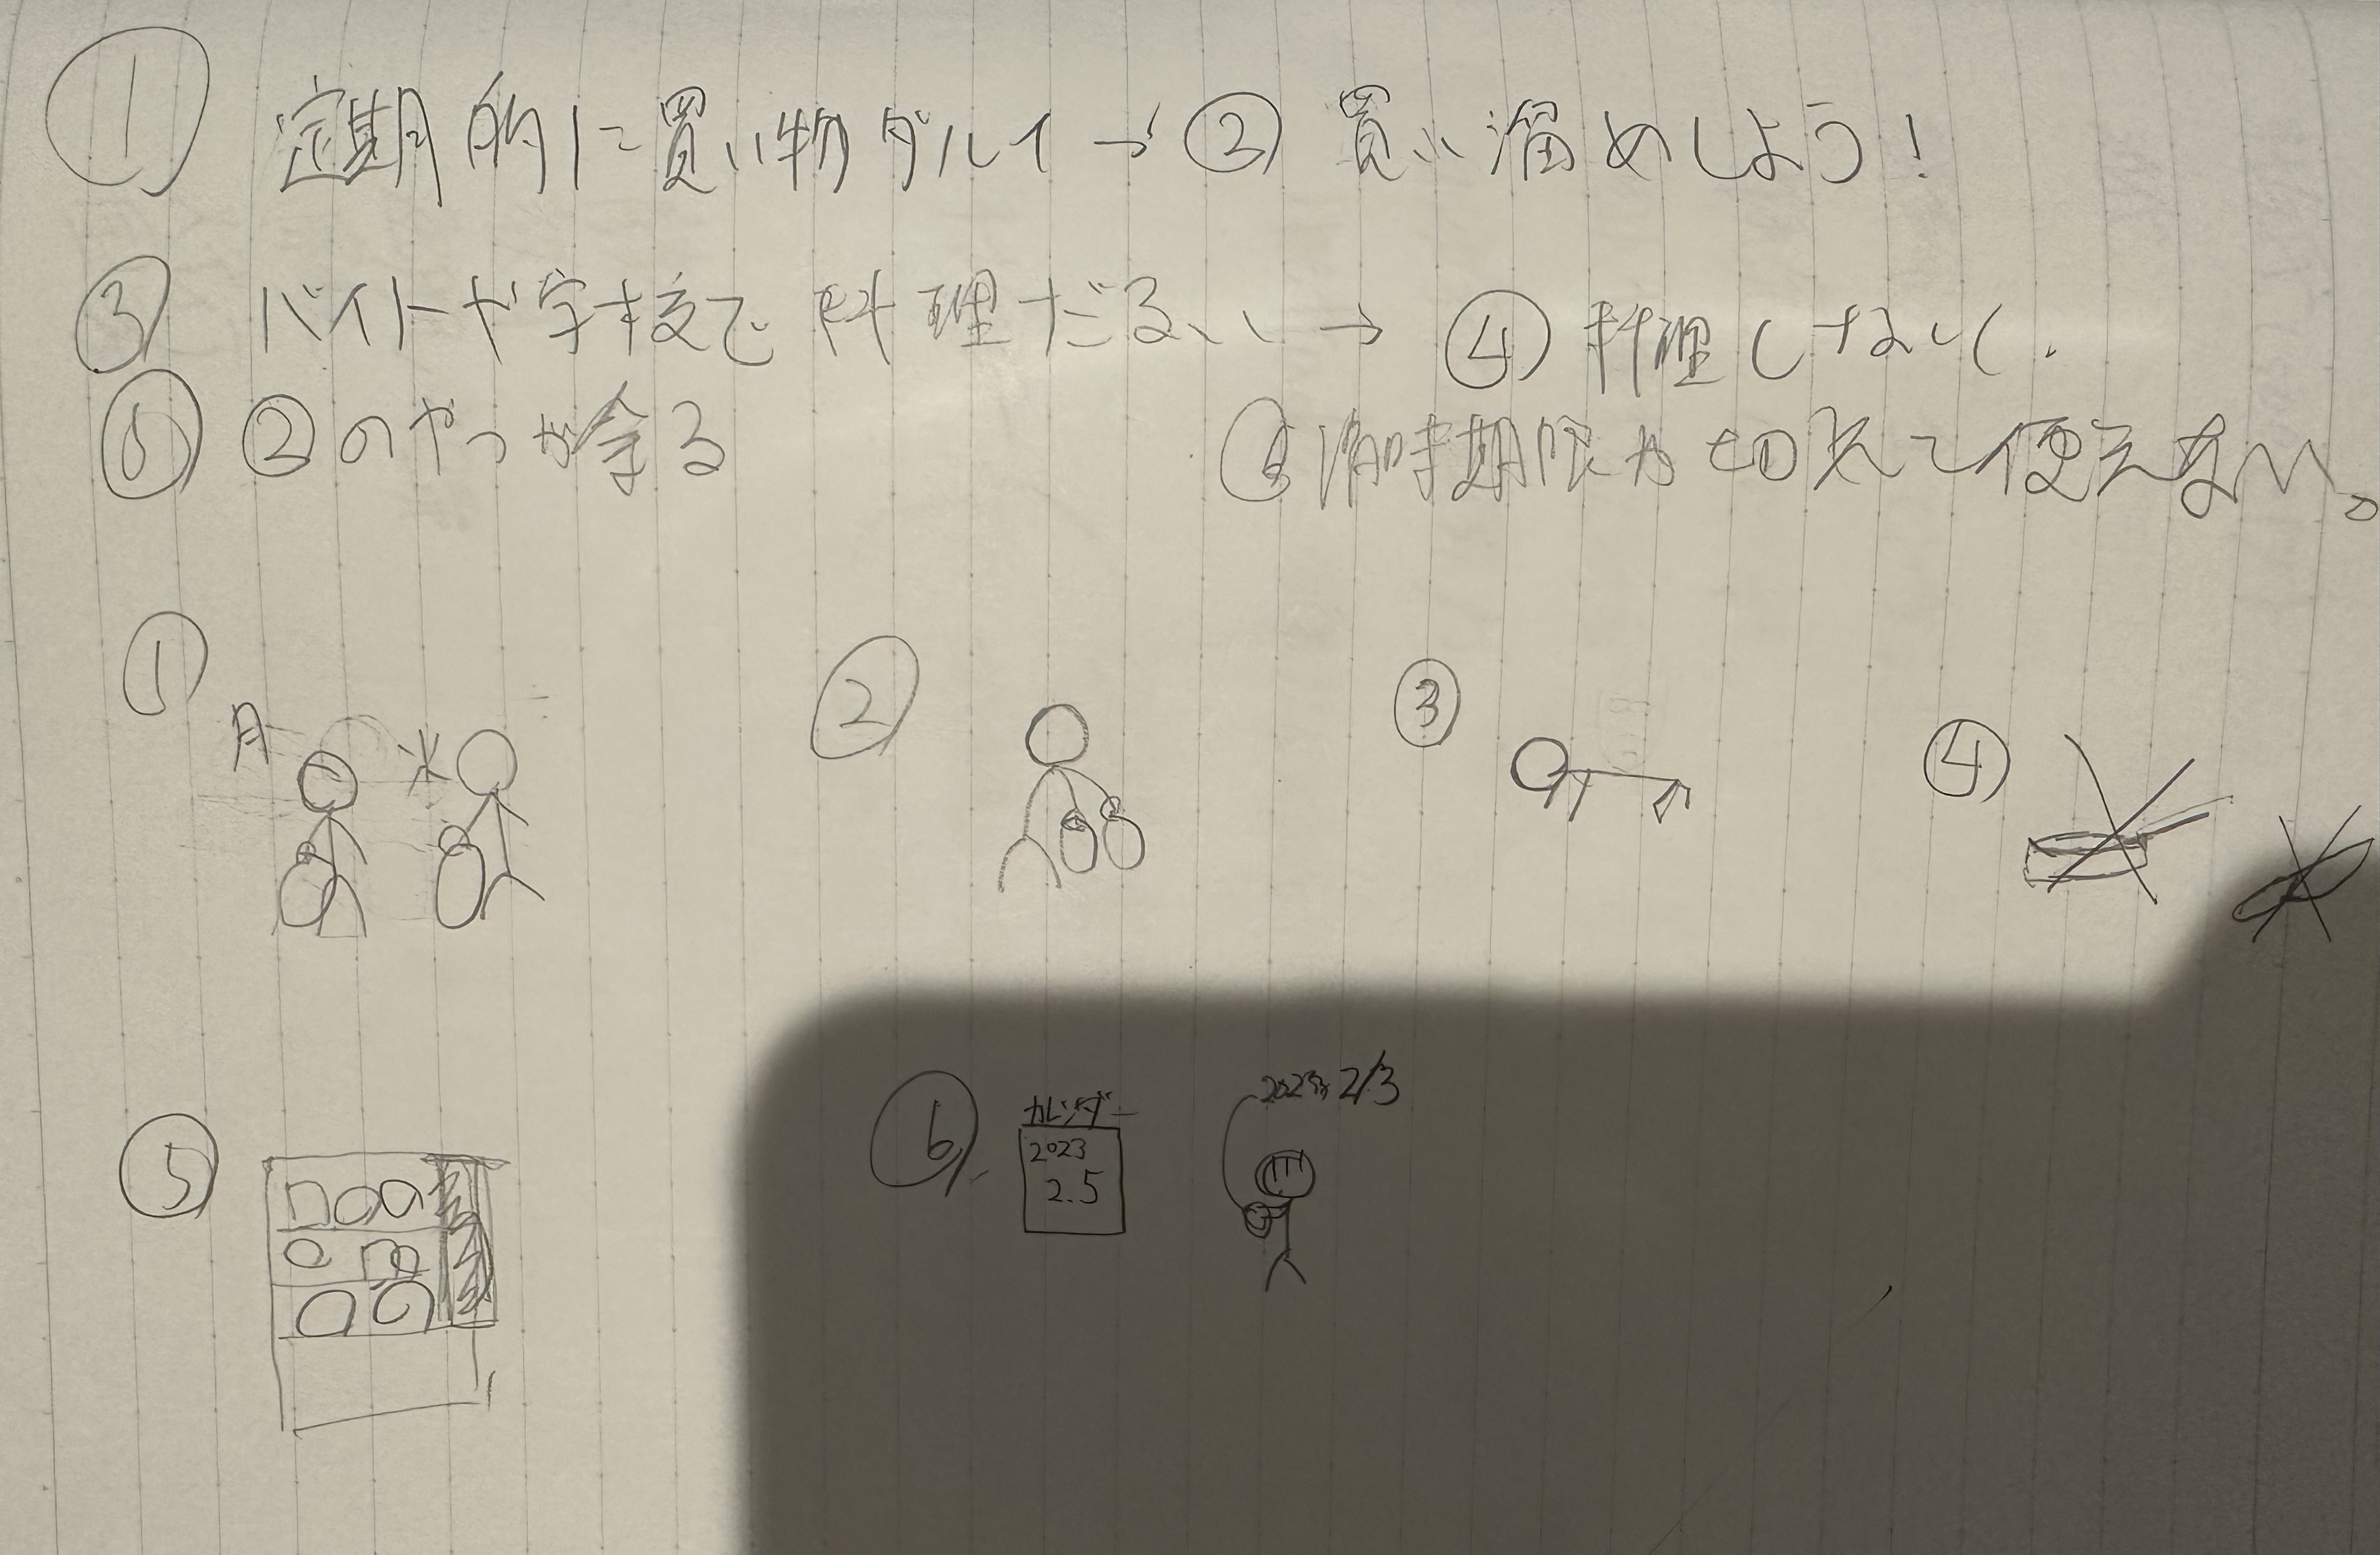 ① 定期的に買い物ダルイ → ② 買い溜めしよう!
③ バイトや学校で料理だるい → ④ 料理しない.
⑤ ②のやつが余る ⑥ 消味期限が切れて使えない。
①
月 水
②
③
④
⑤
⑥
カレンダー
2023
2.5
2023年2/3